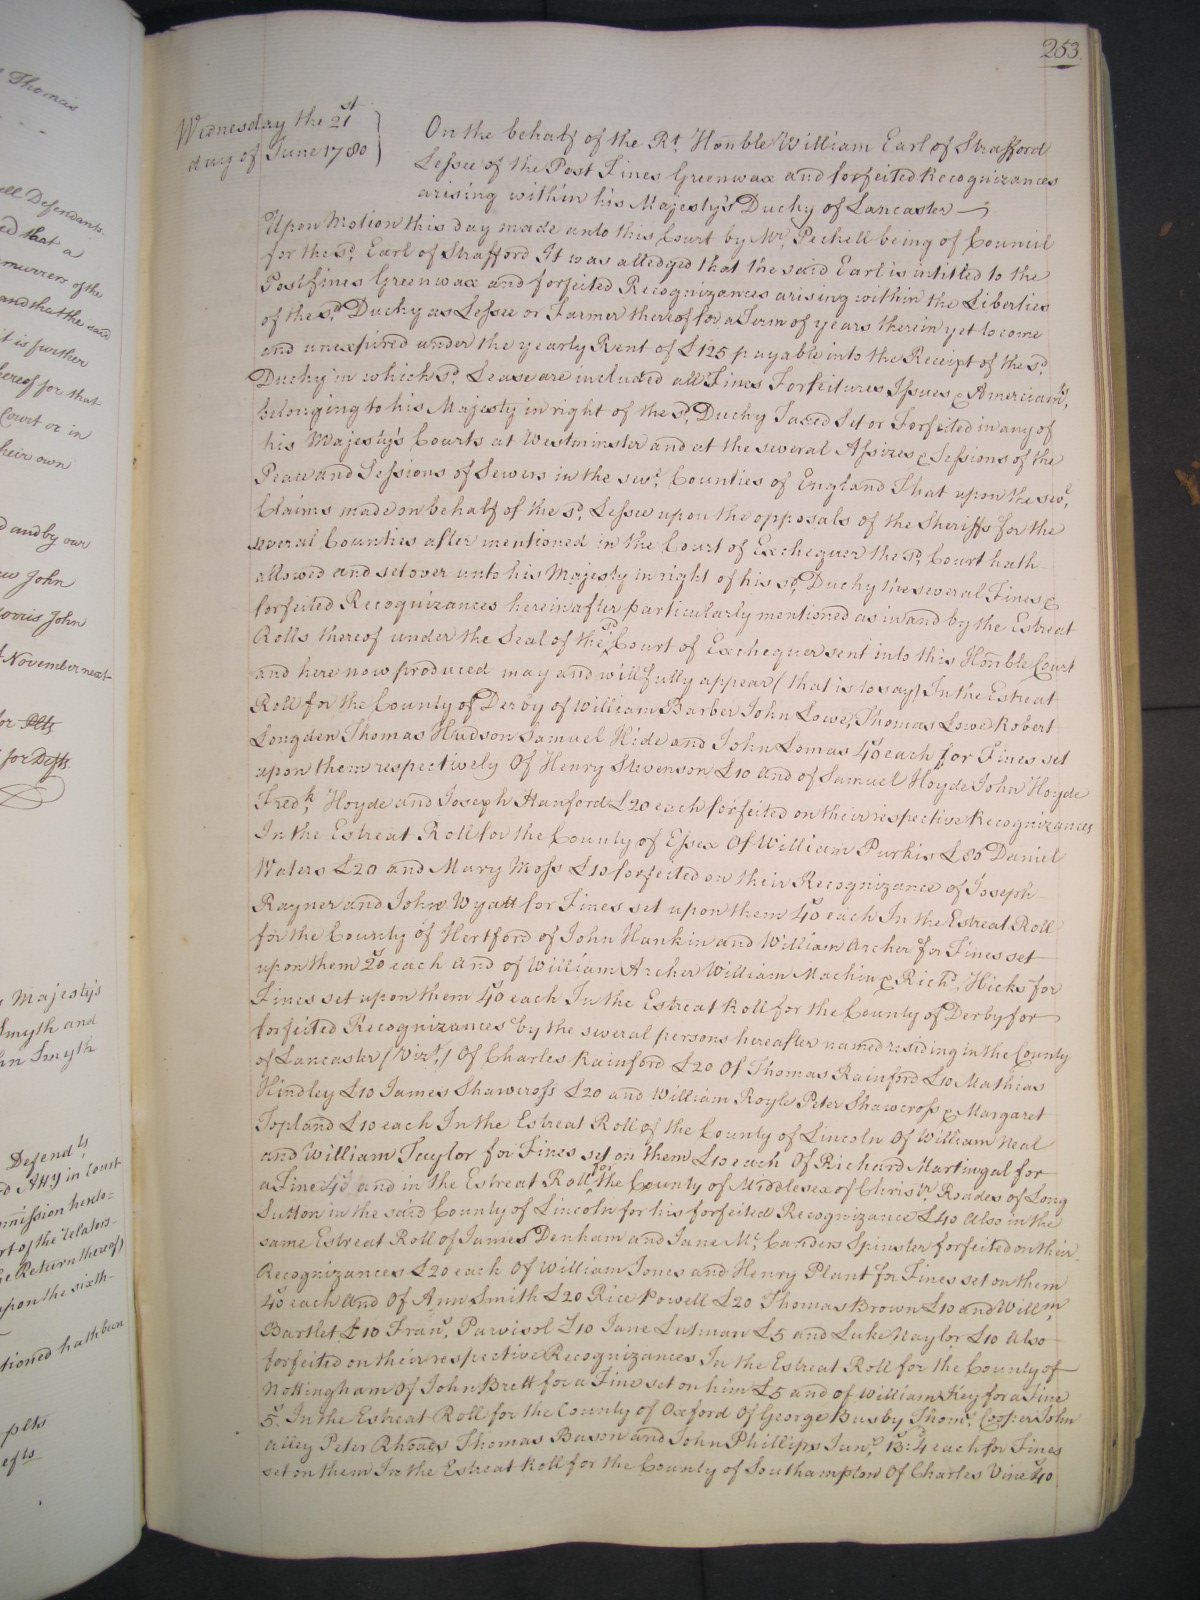 253.
Wednesday the 21st
day of June 1780
On the behalf of the Rt. Honble William Earl of Strafford
Lessee of the Post Fines Greenwax and forfeited Recognizances
arising within his Majesty's Duchy of Lancaster
Upon Motion this day made unto this Court by Mr. Pechell being of Council
for the sd. Earl of Strafford It was alledged that the said Earl is intitled to the
Postfines Greenwax and forfeited Recognizances arising within the Liberties
of the sd. Duchy as Lessee or Farmer thereof for a Term of years therein yet to come
and unexpired under the yearly Rent of £125 payable into the Receipt of the sd.
Duchy in which sd. Lease are included all Fines Forfeitures Issues & Amerciamts.
belonging to his Majesty in right of the sd. Duchy Taxed Set or Forfeited in any of
his Majesty's Courts at Westminster and at the several Assizes & Sessions of the
Peace and Sessions of Sewers in the sevl. Counties of England That upon the sevl.
Claims made on behalf of the sd. Lessee upon the opposals of the Sheriffs for the
several Counties after mentioned in the Court of Exchequer the sd. Court hath
allowed and set over unto his Majesty in right of his sd. Duchy the several Fines &
forfeited Recognizances herein after particularly mentioned as in and by the Estreat
Rolls thereof under the Seal of the sd. Court of Exchequer sent into this Honble Court
and here now produced may and will fully appear (that is to say) In the Estreat
Roll for the County of Derby of William Barber John Lowe, Thomas Lowe Robert
Longden Thomas Hudson Samuel Hide and John Lomas 40s each for Fines set
upon them respectively Of Henry Stevenson £10 and of Samuel Hoyde John Hoyde
Fredk. Hoyde and Joseph Hanford £20 each forfeited on their respective Recognizances
In the Estreat Roll for the County of Essex Of William Purkis £80 Daniel
Waters £20 and Mary Moss £10 forfeited on their Recognizance of Joseph
Rayner and John Wyatt for Fines set upon them 40s each In the Estreat Roll
for the County of Hertford of John Hankin and William Archer for Fines set
upon them 20s each and of William Archer William Machin & Richd. Hicks for
Fines set upon them 40s each In the Estreat Roll for the County of Derby for
forfeited Recognizances by the several persons hereafter named residing in the County
of Lancaster (Vizt.) Of Charles Rainford £20 Of Thomas Rainford £10 Mathias
Hindley £10 James Shawcross £20 and William Royle Peter Shawcross & Margaret
Topland £10 each In the Estreat Roll of the County of Lincoln Of William Neal
and William Taylor for Fines set on them £10 each Of Richard Martingal for
a Fine 40s and in the Estreat Roll for the County of Middlesex of Christr. Roades of Long
Sutton in the said County of Lincoln for his forfeited Recognizance £40 Also in the
same Estreat Roll of James Denham and Jane Mc.Canders Spinster forfeited on their
Recognizances £20 each Of William Jones and Henry Plant for Fines set on them
40s each and Of Ann Smith £20 Rice Powell £20 Thomas Brown £10 and Willm.
Bartlet £10 Frans. Parvisol £10 Jane Lutman £5 and Luke Naylor £10 Also
forfeited on their respective Recognizances In the Estreat Roll for the County of
Nottingham Of John Brett for a Fine set on him £5 and of William Key for a Fine
5s. In the Estreat Roll for the County of Oxford Of George Busby Thoms. Cooper John
Alley Peter Rhoads Thomas Bason and John Phillips Junr. 13s:4d each for Fines
set on them In the Estreat Roll for the County of Southampton Of Charles Vine 40s
Thomas
Defendants.
ed that a
murrers of the
and that the said
it is further
hereof for that
Court or in
heir own
and by our
John
Morris John
November next
for Plts
for Defts.
Majesty's
Smyth and
hn Smyth
Defendts
Atty in Court
mmission hereto=
rt of the relators
he Return thereof)
upon the sixth
tioned hath been
plts
efts